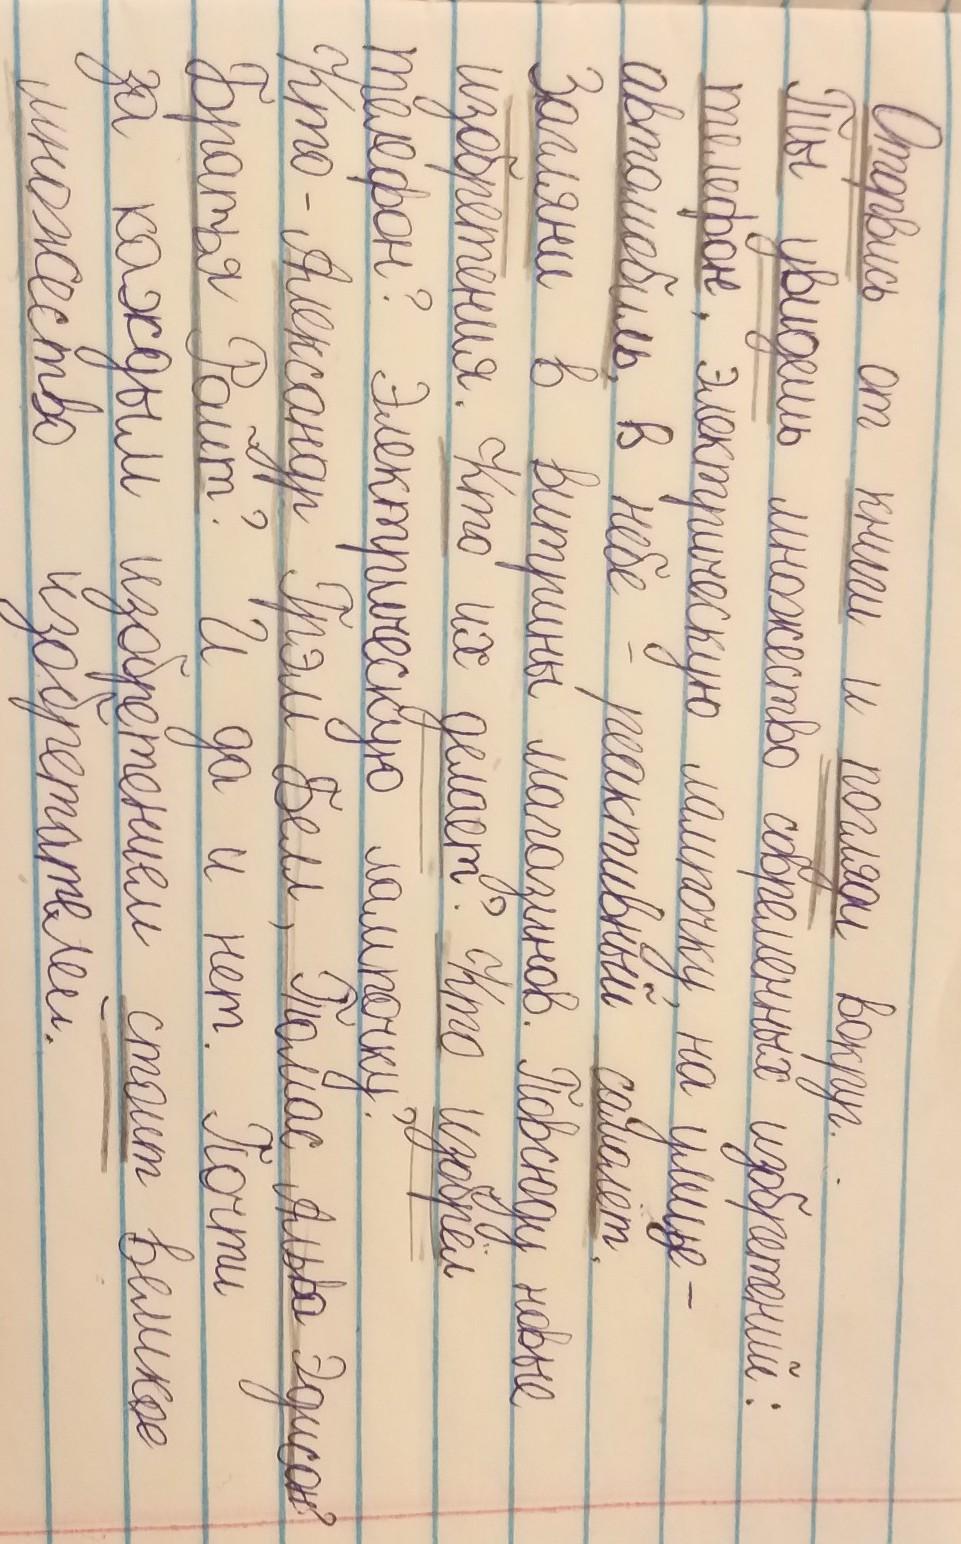 Оторвись от книги и погляди вокруг.
Ты увидешь множество современных изобретений:
телефон, электрическую лампочку, на улице -
автомобиль, в небе - реактивный самолет.
Загляни в витрины магазинов. Повсюду новые
изобретения. Кто их делает? Кто изобрёл
телефон? Электрическую лампочку?
Кто - Александр Грэм Белл, Томас Альва Эдисон?
Братья Райт? И да и нет. Почти
за каждым изобретением стоит великое
множество изобретателей.